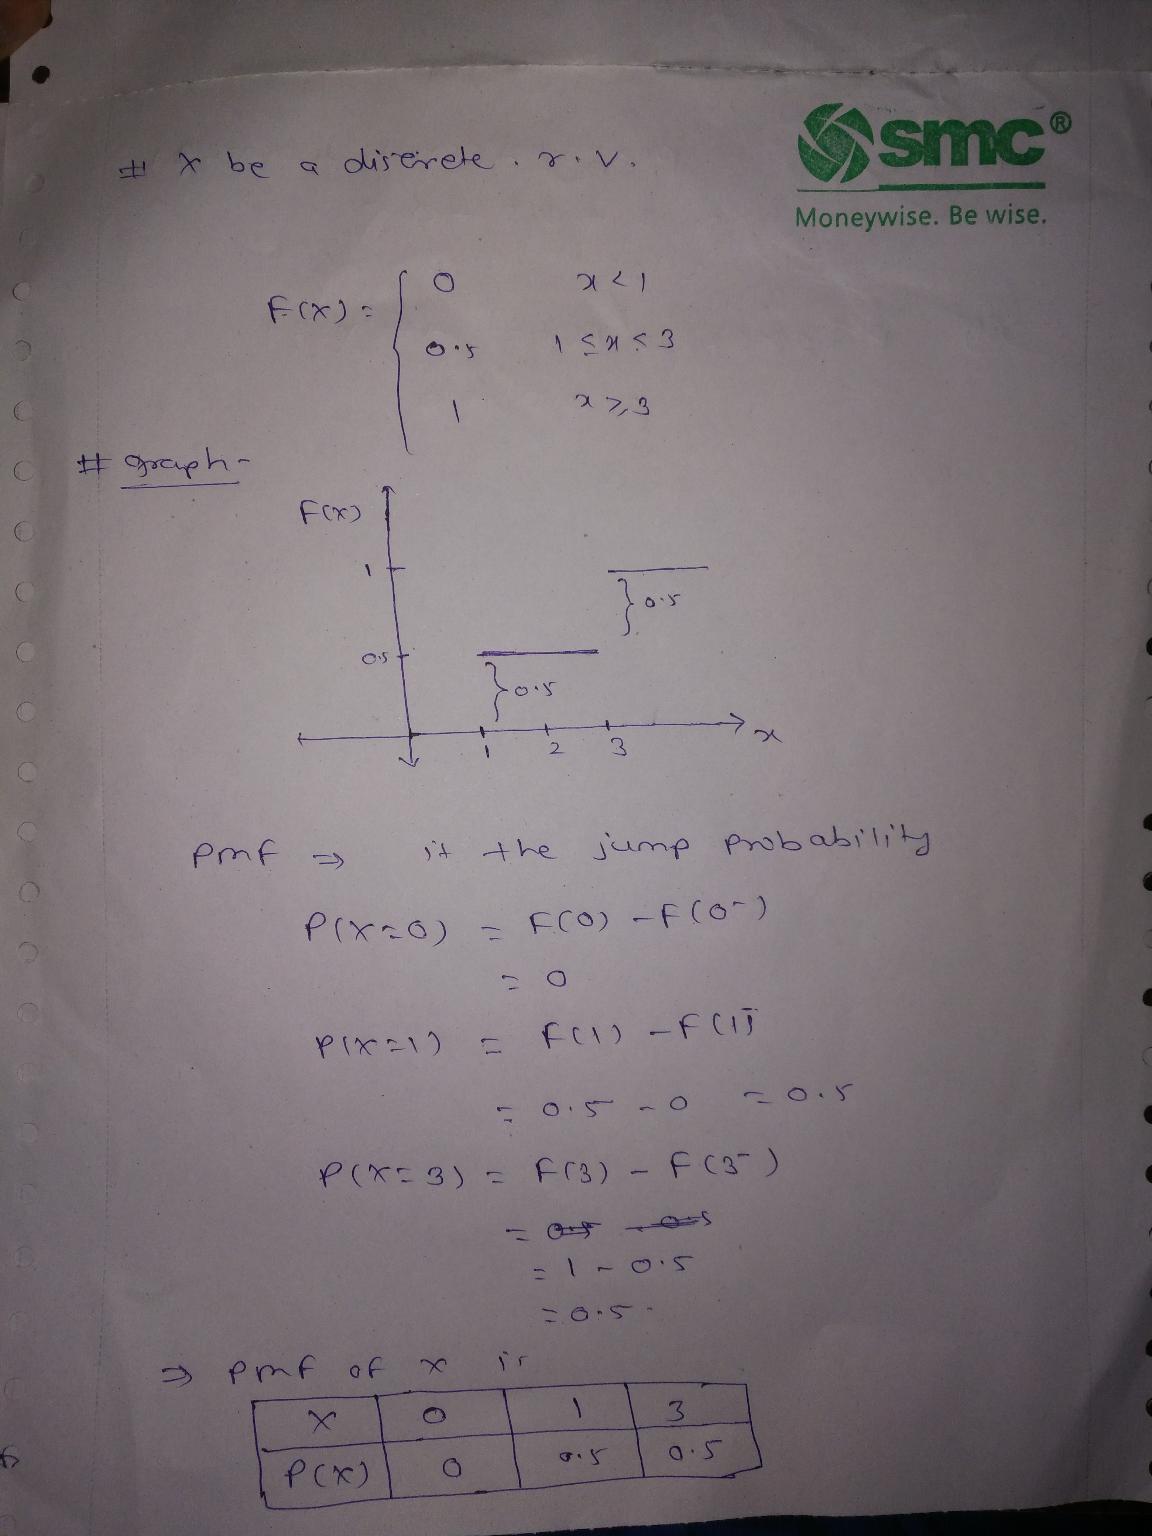 smc®
Moneywise. Be wise.
# X be a discrete . r.v.
F(X) = { 0 x < 1
0.5 1 ≤ x ≤ 3
1 x ≥ 3
# graph -
F(X)
1
0.5
} 0.5
} 0.5
1 2 3 x
pmf ⇒ it the jump probability
P(X=0) = F(0) - F(0-)
= 0
P(X=1) = F(1) - F(1-)
= 0.5 - 0 = 0.5
P(X=3) = F(3) - F(3-)
= 0.5 - 0.5
= 1 - 0.5
= 0.5
⇒ pmf of x is
X 0 1 3
P(X) 0 0.5 0.5